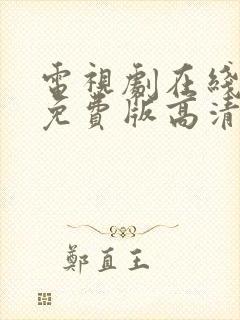 電視劇在綫
免費版高清
鄭直王